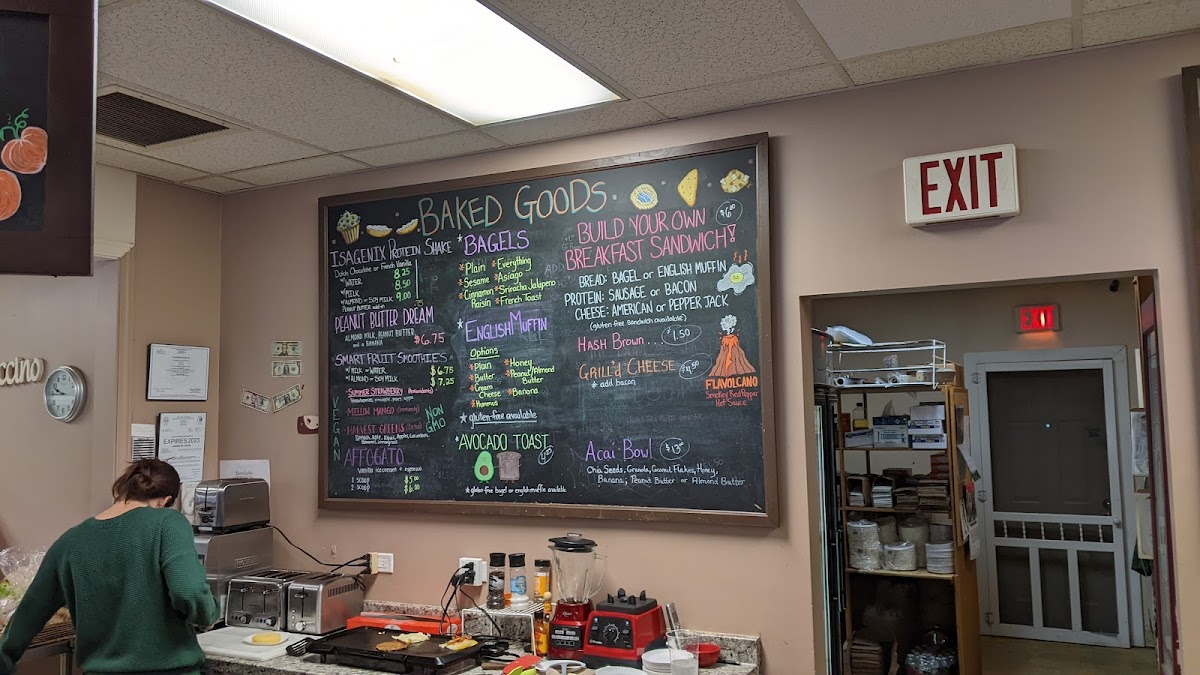 BAKED GOODS
ISAGENIX PROTEIN SHAKE
Dutch Chocolate or French Vanilla
w/ WATER 8.25
w/ MILK 8.50
w/ ALMOND or SOY MILK 9.00
PEANUT BUTTER add-in
PEANUT BUTTER DREAM
ALMOND MILK, PEANUT BUTTER
and a BANANA
$6.75
SMART FRUIT SMOOTHIES
w/ MILK or WATER $6.75
w/ ALMOND or SOY MILK $7.25
VEGAN
SUMMER STRAWBERRY
MELLOW MANGO
HARVEST GREENS
NON
GMO
AFFOGATO
Vanilla ice cream + espresso
1 SCOOP $5.00
2 SCOOP $6.00
*BAGELS
*Plain *Everything
*Sesame *Asiago
*Cinnamon Raisin *Sriracha Jalapeno
*French Toast
*ENGLISH MUFFIN
Options
*Plain *Honey
*Butter *Peanut/Almond Butter
*Cream Cheese *Banana
*Hummus
*gluten-free available
*AVOCADO TOAST
*gluten-free bagel or english muffin available
BUILD YOUR OWN $6.00
BREAKFAST SANDWICH!
BREAD: BAGEL or ENGLISH MUFFIN
PROTEIN: SAUSAGE or BACON
CHEESE: AMERICAN or PEPPER JACK
(gluten free sandwich available)
HASH BROWN... $1.50
GRILL'd CHEESE $4.50
* add bacon
FLAVOLCANO
Smokey Red Pepper
Hot Sauce
Acai Bowl
Chia Seeds, Granola, Coconut Flakes, Honey,
Banana, Peanut Butter or Almond Butter
EXIT
EXIT
ccino
EXPIRES 2023